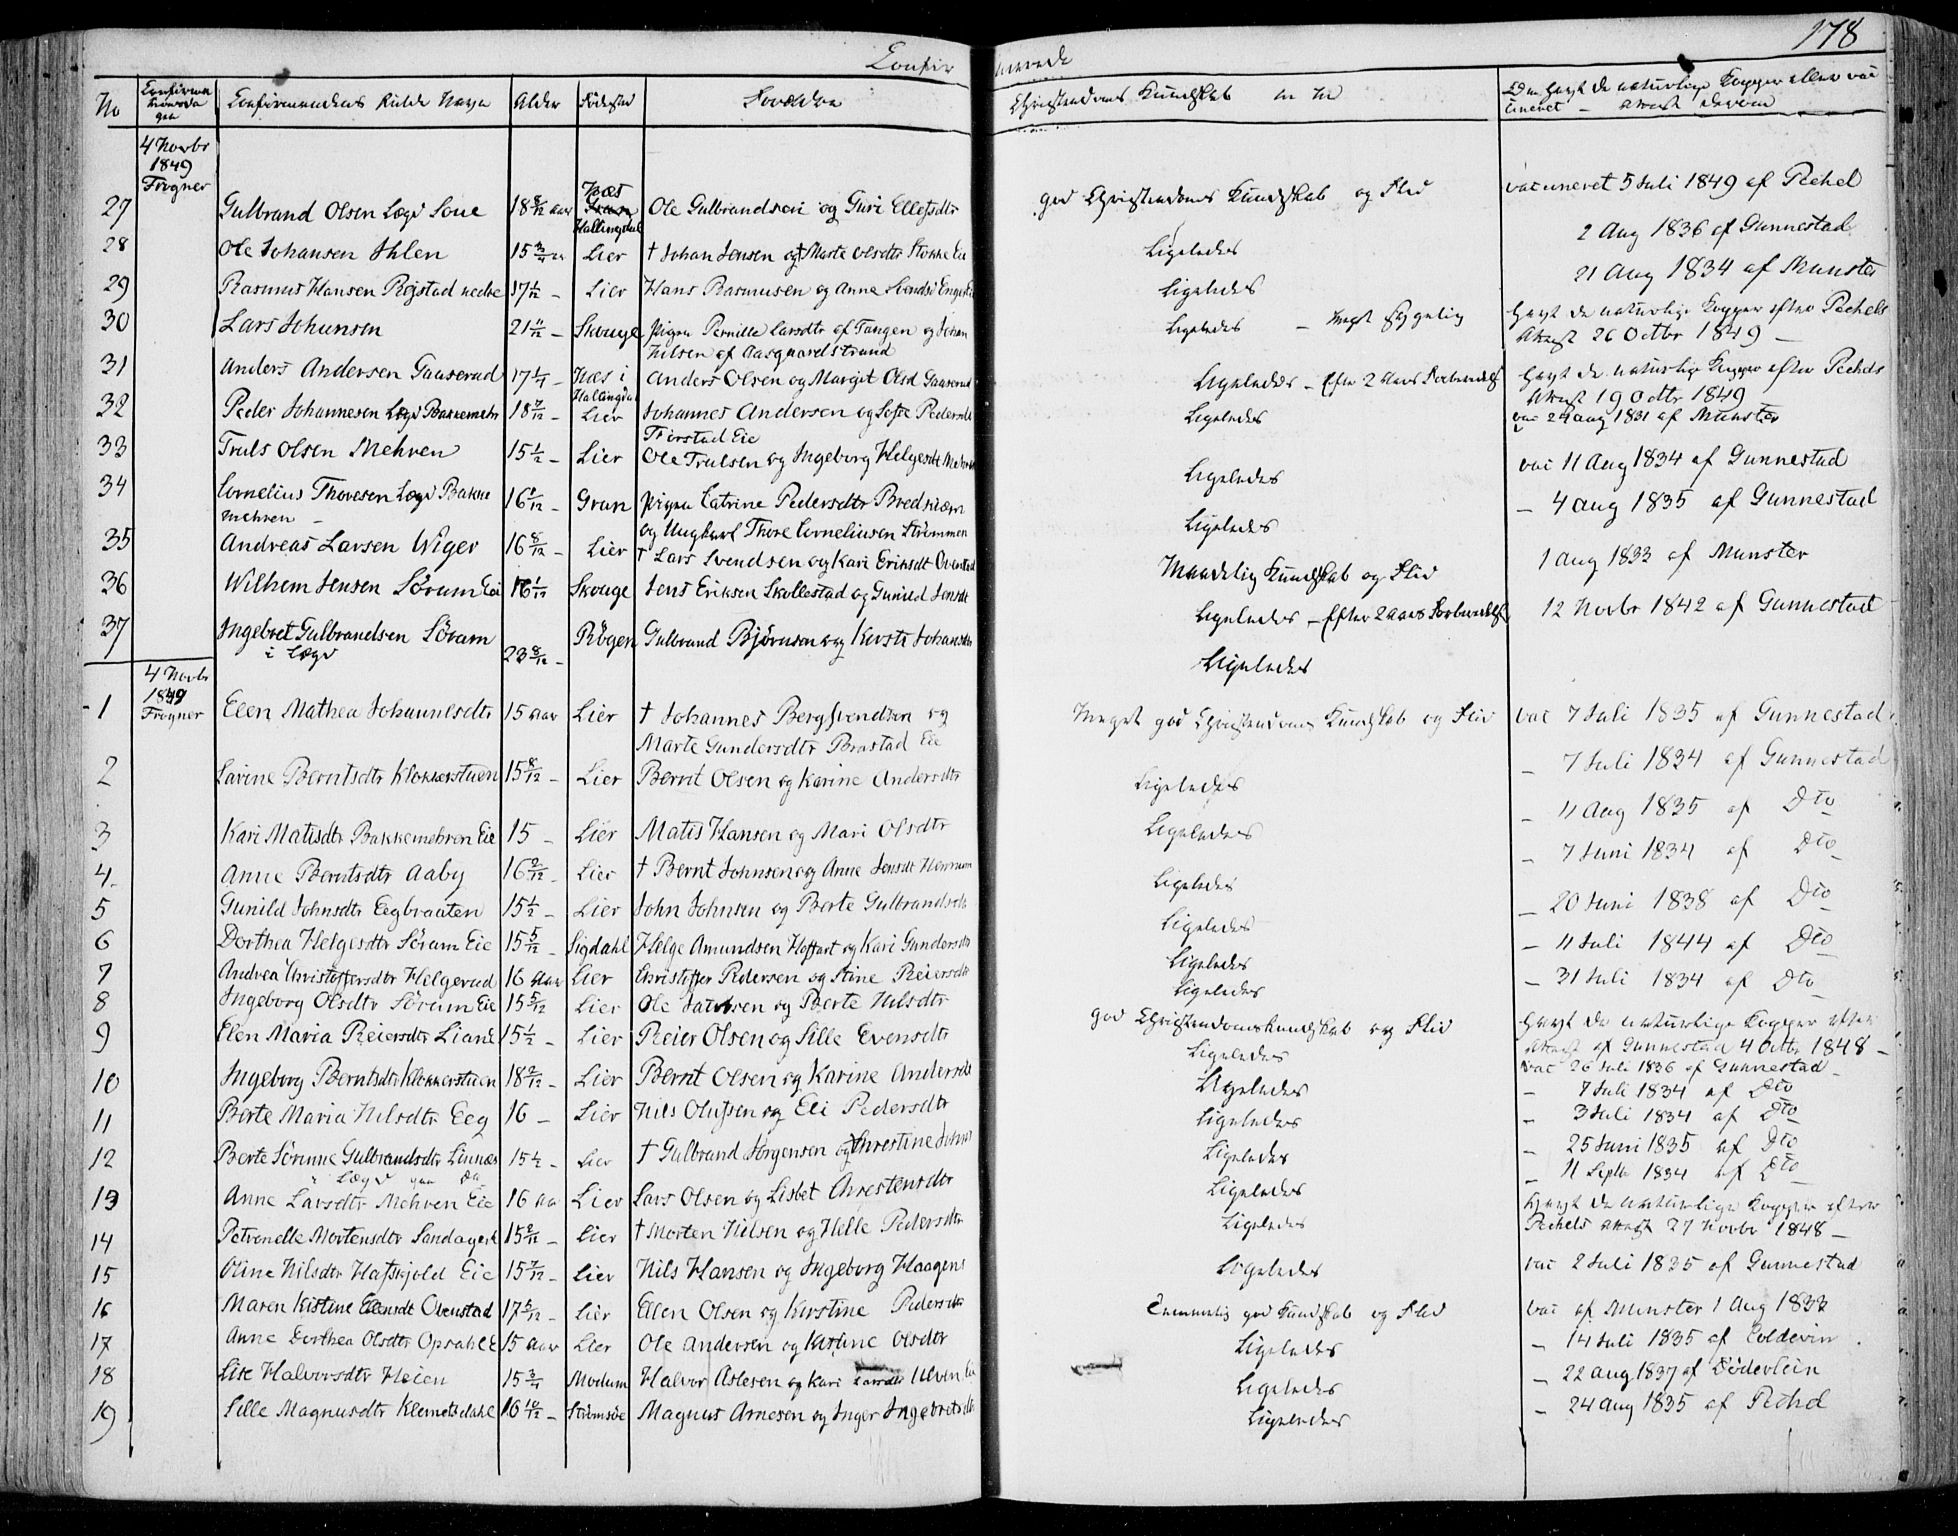 178
Confirmerede
No Confirmationsdagen Confirmandens fulde Navn Alder Födested Forældre Christendoms Kundskab m m Om havt de naturlige Kopper eller vaccineret – Attest derom
4 Novbr
1849
Frogner
27 Gulbrand Olsen Lægd 18 Aar Næs Hallingdal Ole Gulbrandsen og Guri Ellefsdtr god Christendoms Kundskab og Flid vaccineret 5 Juli 1849 af Pechel
28 Ole Johansen Ihlen 15 Lier † Johan Jensen og † Marte Olsdtr Stokke Eie Ligeledes 2 Aug 1836 af Gunnestad
29 Rasmus Hansen Røjstad nedre 17 – Lier Hans Rasmusen og Anne Ligeledes 21 Aug 1834 af Munster
30 Lars Johansen 21 – Skouge Pigen Pernille Larsdtr af Tangen og Johan Ligeledes – meget sygelig havt de naturlige Kopper efter Pechels
Nilsen af Aasgaardstrand Attest 26 Octbr 1849 –
31 Anders Andersen Gaaserud 17 – Næs i Hallingda Anders Olsen og Margit Olsd Gaaserud Ligeledes – Efter 2 Aars Forberedelse havt de naturlige Kopper efter Pechels
Attest 19 Octbr 1849
32 Peder Johannesen Lægd Bakkemehr 18 – Lier Johannes Andersen og Sofie Pedersdtr Ligeledes vac 24 aug 1831 af Munster
Eie
33 Truls Olsen Mehren 15 1/2 – Lier Ole Trulsen og Ingeborg Helgesdt Mehren Ligeledes vac 11 Aug 1834 af Gunnestad
34 Cornelius Thoresen Lægd Bakke 16 – Gran Pigen Catrine Pedersdtr Ligeledes – 4 aug 1835 af Gunnestad
mehren – og Ungkarl Thore Corneliusen Strømmen
35 Andreas Larsen Wiger 16 8/12 – Lier † Lars Svendsen og Kari Eriksdt Ovenstad Maadelig Kundskab og Flid 1 Aug 1833 af Munster
36 Wilhem Jensen Sörum Eie 16 1/12 Skouge Jens Eriksen Skollestad og Gunild Jensdt Ligeledes – Efter 2 Aars Forberedelse 12 Novbr 1842 af Gunnestad
37 Ingebret Gulbrandsen Sörum 23 8/12 – Rögen Gulbrand Björnsen og Kirsti Johansdtr Ligeledes
i Lægd
4 Novbr
1849
Frogner
1 Elen Mathea Johannesdtr 15 Aar Lier † Johannes Bergsvendsen og Meget god Christendoms Kundskab og Flid vac 7 Juli 1835 af Gunnestad
Marte Gundersdtr Brastad Eie
2 Lavine Berntsdtr Klokkerstuen 15 8/12 – Lier Bernt Olsen og Karine Andersdtr Ligeledes – 7 Juli 1834 af Gunnestad
3 Kari Matisdtr Bakkemehren Eie 15 – Lier Matis Hansen og Mari Olsdtr Ligeledes – 11 Aug 1835 af Dto
4 Anne Berntsdtr Aaby 16 – Lier † Bernt Johnsen og Anne Jensdt Ligeledes – 7 Juni 1834 af Dto
5 Gunild Johnsdtr Eegbraaten 15 1/2 – Lier John Johnsen og Berte Gulbrandsdtr Ligeledes – 20 Juni 1838 af Dto
6 Dorthea Helgesdtr Sörum Eie 15 5/12 – Sigdahl Helge Amundsen Hoffart og Kari Gundersdtr Ligeledes – 11 Juli 1844 af Dto
7 Andrea Christoffersdtr Helgerud 16 Aar Lier Christoffer Pedersen og Stine Reiersdtr Ligeledes – 31 Juli 1834 af Dto
8 Ingeborg Olsdtr Sörum Eie 15 5/12 Lier Ole Jacobsen og Berte Nilsdtr god Christendomskundskab og Flid havt de naturlige Kopper efter
Attest af Gunnestad 4 Octbr 1848 –
9 Elen Maria Reiersdtr Liane 15 1/2 – Lier Reier Olsen og Sille Evensdtr Ligeledes vac 26 Juli 1836 af Gunnestad –
10 Ingeborg Berntsdtr Klokkerstuen 18 – Lier Bernt Olsen og Karine Andersdtr Ligeledes – 7 Juli 1834 af Dto
11 Berte Maria Nilsdtr Eeg 16 – Lier Nils Olufsen og Eli Pedersdtr Ligeledes – 3 Juli 1834 af Dto
12 Berte Sörinne Gulbrandsdtr Linnæs 15 1/2 – Lier † Gulbrand Jörgensen og Chrestine Ligeledes – 25 Juni 1835 af Dto
Lægd
13 Anne Larsdtr Mehren Eie 16 Aar Lier Lars Olsen og Lisbet Chrestensdtr Ligeledes – 11 Septb 1834 af Dto
14 Petronelle Mortensdtr Sandager 15 – Lier † Morten Nilsen og Helle Pedersdtr Ligeledes havt de naturlige Kopper efter
Pechels Attest 27 Novbr 1848 –
15 Oline Nilsdtr Hafskjold Eie 15 – Lier Nils Hansen og Ingeborg Haagens Ligeledes vac 2 Juli 1835 af Gunnestad
16 Maren Kistine Ellensdt Ovenstad 17 – Lier Ellen Olsen og Kirstine Pedersdtr Temmelig god Kundskab og Flid vac af Munster 1 Aug 1833
17 Anne Dorthea Olsdtr Opsahl E 15 Aar Lier Ole Andersen og Karine Olsdtr Ligeledes – 14 Juli 1835 af Coldevin
18 Lise Halvorsdtr Heien 15 3/4 Modum Halvor Aslesen og Kari Larsdtr Ulven Eie Ligeledes – 22 aug 1837 af Döderlein
19 Sille Magnusdtr Klemetsdahl 16 10/12 – Strömsöe Magnus Arnesen og Inger Ingebretsdtr Ligeledes – 24 aug 1835 af Pechel